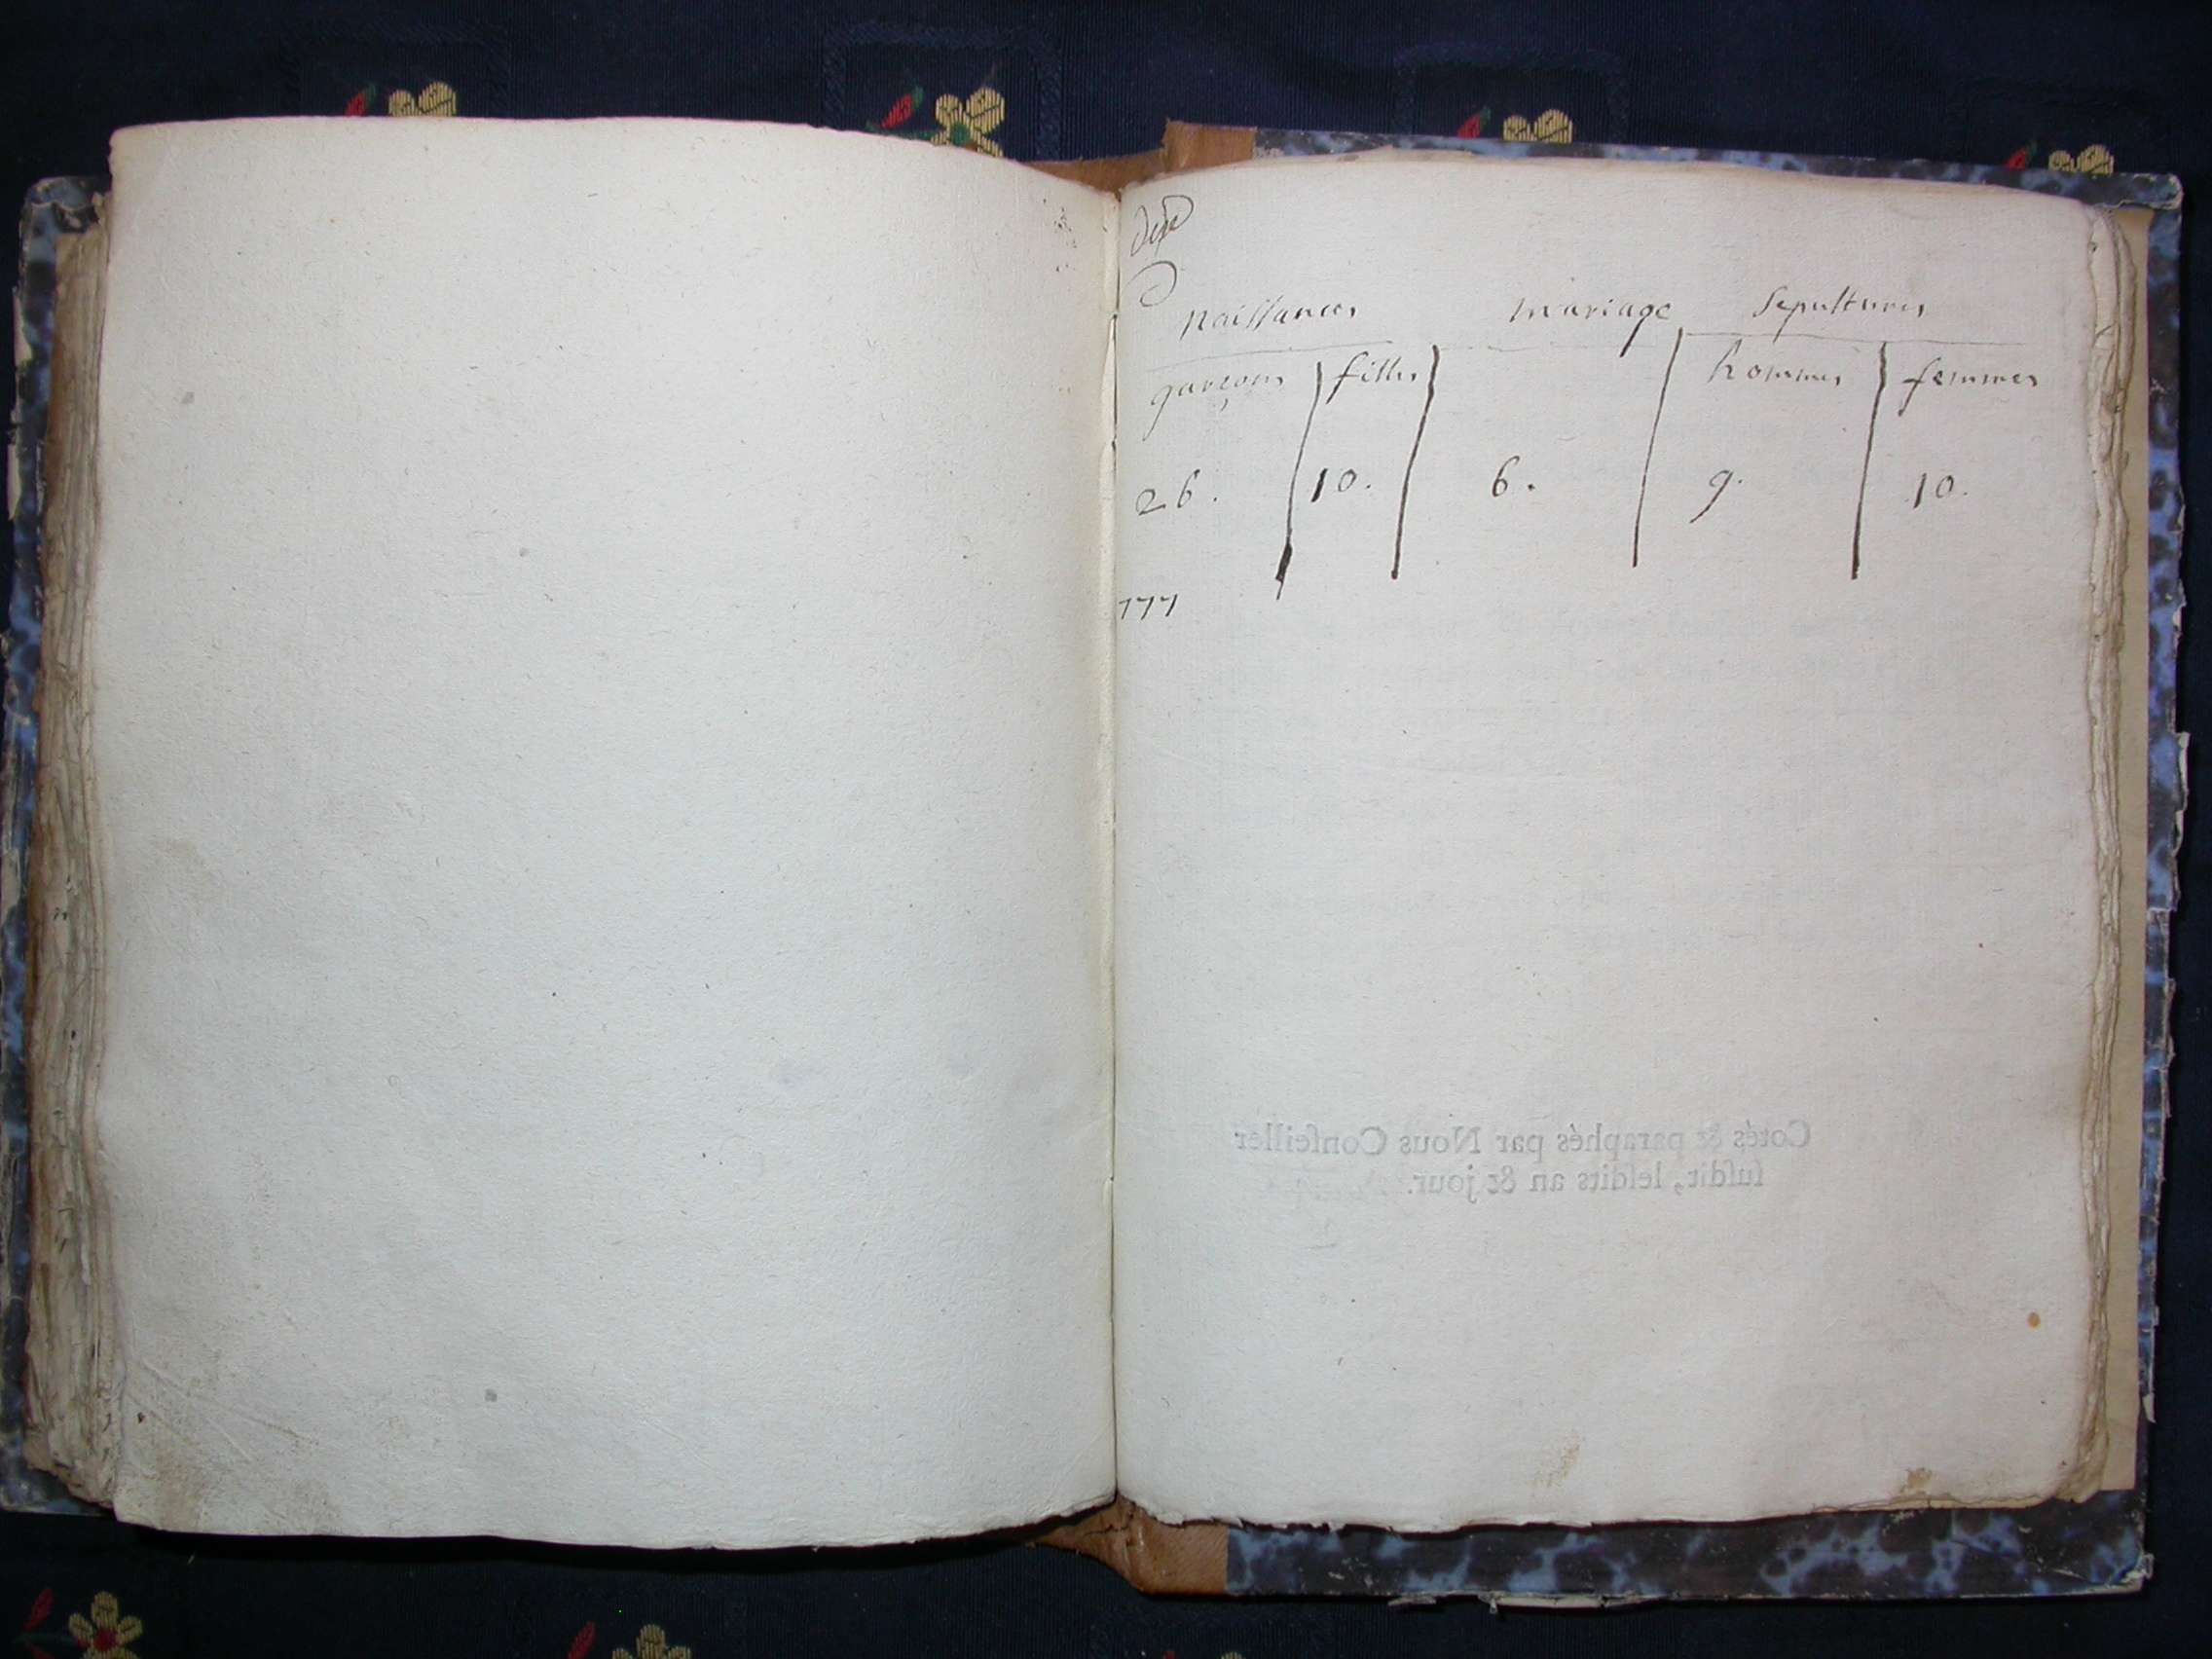 Dixe
naissances mariage Sepultures
garçons filles hommes femmes
26. 10. 6. 9. 10.
177
Cotés & paraphés par Nous Conseiller
susdit, lesdits an & jour.